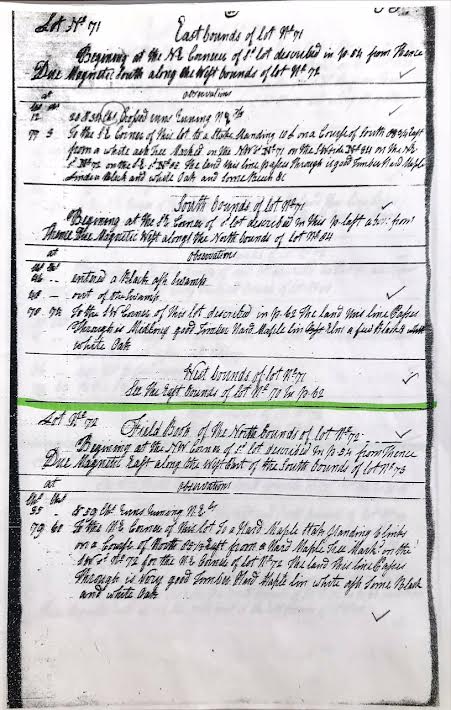 Lot No 71
East bounds of Lot No 71
Begining at the NE Corner of sd lot described in p. 54 from Thence
Due Magnetic South along the West bounds of Lot No 72
at observations
12 Crossed runing
77 3 To the SE Corner of this lot to a Stake Standing on a Course of South East
from a white ash tree Marked on the NW No 71 on the SW No 84 on the NE
No 72 on the SE The land this line passes through is good Timber Hard Maple
Linden Black and white Oak and some Beech &c
South bounds of Lot No 71
Begining at the SE Corner of sd lot described in this p. left from
Thence Due Magnetic West along the North bounds of Lot No 84
at observations
entered a Black ash Swamp
out of the Swamp
To the SW Corner of this lot described in p. 62 The land this line Passes
Through is Midling good Timber Hard Maple Lin Elm a few Black &
white Oak
West bounds of Lot No 71
See the East Bounds of Lot No 70 in p. 62
Lot No 72
Field Book of the North bounds of Lot No 72
Begining at the NW Corner of sd lot described in p 54 from Thence
Due Magnetic East along the West End of the South bounds of Lot No 73
at observations
35 - runing N E
79 60 To the NE Corner of this lot to a Hard Maple Stake Standing links
on a Course of North East from a Hard Maple Tree Mark on the
No 72 for the NE Bounds of Lot No 72 The land this line Passes
Through is Very good Timber Hard Maple Lin white ash Some Black
and white Oak